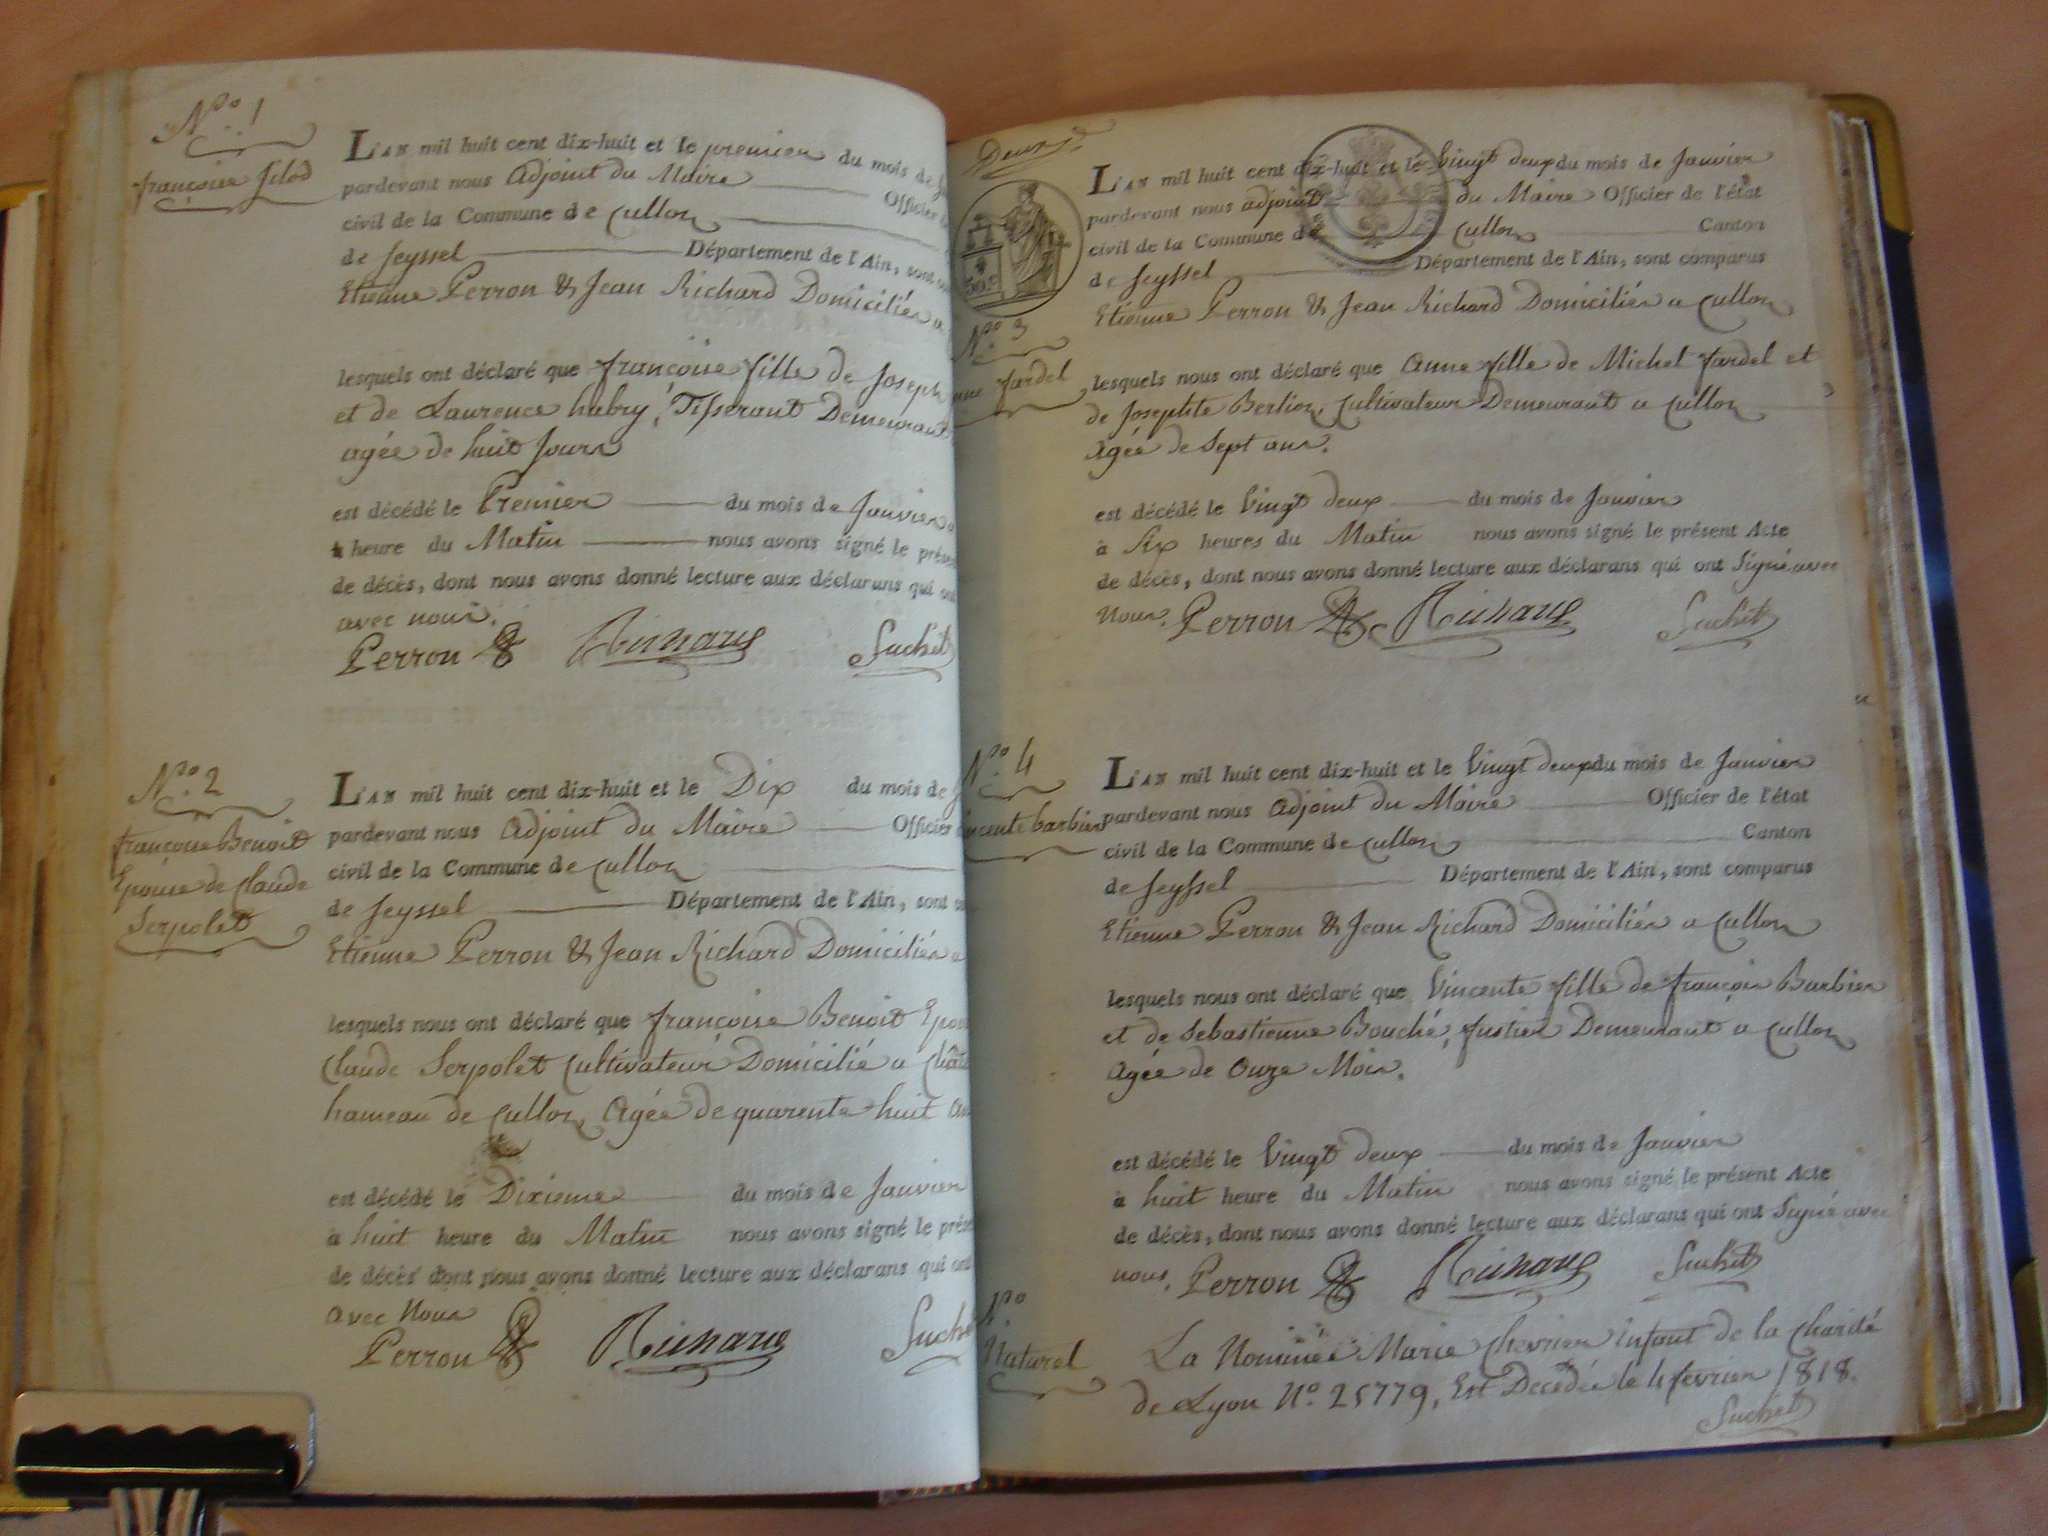 N.o 1
françoise filod
L'AN mil huit cent dix-huit et le premier du mois de
pardevant nous Adjoint du Maire Officier
civil de la Commune de Culloz
de Seyssel Département de l'Ain, sont
Etienne Perron & Jean Richard Domiciliés a
lesquels ont déclaré que françoise fille de Joseph
et de Laurence hubry, Tisserant Demeurant
agée de huit Jours
est décédé le Premier du mois de Janvier
heure du Matin nous avons signé le
de décès, dont nous avons donné lecture aux déclarans qui
avec nous.
Perron Richard Suchet
N.o 2
françoise Benoit
Epouse de Claude
Serpolet
L'AN mil huit cent dix-huit et le Dix du mois de
pardevant nous Adjoint du Maire Officier
civil de la Commune de Culloz
de Seyssel Département de l'Ain, sont
Etienne Perron & Jean Richard Domiciliés a
lesquels nous ont déclaré que françoise Benoit
Claude Serpolet Cultivateur Domicilié a
hameau de Culloz, Agée de quarente huit
est décédé le Dixieme du mois de Janvier
à huit heure du Matin nous avons signé le
de décès dont nous avons donné lecture aux déclarans qui
avec Nous
Perron Richard Suchet
Deux
L'AN mil huit cent dix-huit et le Vingt deux du mois de Janvier
pardevant nous adjoint du Maire Officier de l'état
civil de la Commune de Culloz Canton
de Seyssel Département de l'Ain, sont comparus
Etienne Perron & Jean Richard Domiciliés a Culloz
N.o 3
fardel
lesquels nous ont déclaré que Anne fille de Michel fardel et
de Josephte Berlioz, Cultivateur Demeurant a Culloz
Agée de Sept ans.
est décédé le Vingt deux du mois de Janvier
à Six heures du Matin nous avons signé le présent Acte
de décès, dont nous avons donné lecture aux déclarans qui ont Signé avec
Nous. Perron Richard Suchet
N.o 4
barbier
L'AN mil huit cent dix-huit et le Vingt deux du mois de Janvier
pardevant nous Adjoint du Maire Officier de l'état
civil de la Commune de Culloz Canton
de Seyssel Département de l'Ain, sont comparus
Etienne Perron & Jean Richard Domiciliés a Culloz
lesquels nous ont déclaré que Vincente fille de françois Barbier
et de Sebastienne Bouché, fustier Demeurant a Culloz
Agée de Onze Mois.
est décédé le Vingt deux du mois de Janvier
à huit heure du Matin nous avons signé le présent Acte
de décès, dont nous avons donné lecture aux déclarans qui ont Signé avec
nous. Perron Richard Suchet
N.o
Naturel
La Nommée Marie Chevrier Enfant de la Charité
de Lyon N.o 25779, Est Décédée le 4 fevrier 1818.
Suchet